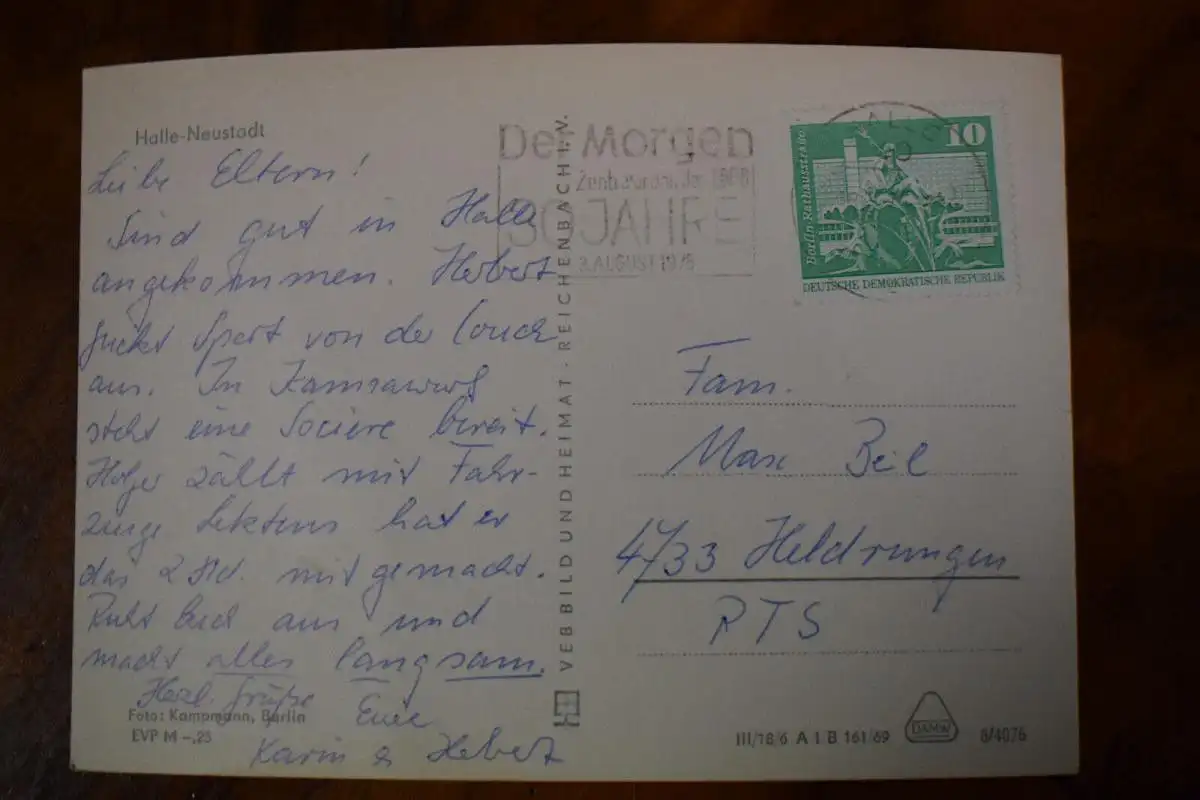 Halle-Neustadt
Liebe Eltern!
Sind gut in Halle
angekommen. Hebert
guckt Sport von der Couch
aus. In
steht eine Sociere bereit.
Holger zällt mit Fahr-
zeuge hat er
das 2 Std. mit gemacht.
Ruht Euch aus und
macht alles langsam.
Herzl. Grüße
Eure
Karin & Hebert
Foto: Kampmann, Berlin
EVP M -,25
VEB BILD UND HEIMAT · REICHENBACH I. V.
Der Morgen
Zentralorgan der LDPD
30 JAHRE
3. AUGUST 1975
10
Berlin-Rathausstraße
DEUTSCHE DEMOKRATISCHE REPUBLIK
Fam.
Max Beil
4733 Heldrungen
RTS
III/18/6 A 1 B 161/69
DAMW
8/4076